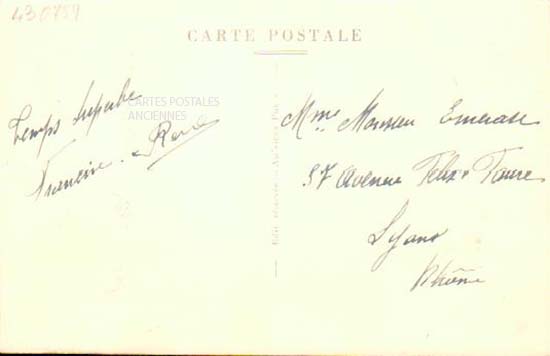 430757
CARTE POSTALE
CARTES POSTALES
ANCIENNES
Temps superbe
Francine - René
Mme Monsieur Emerase
57 Avenue Félix Faure
Lyon
Rhône